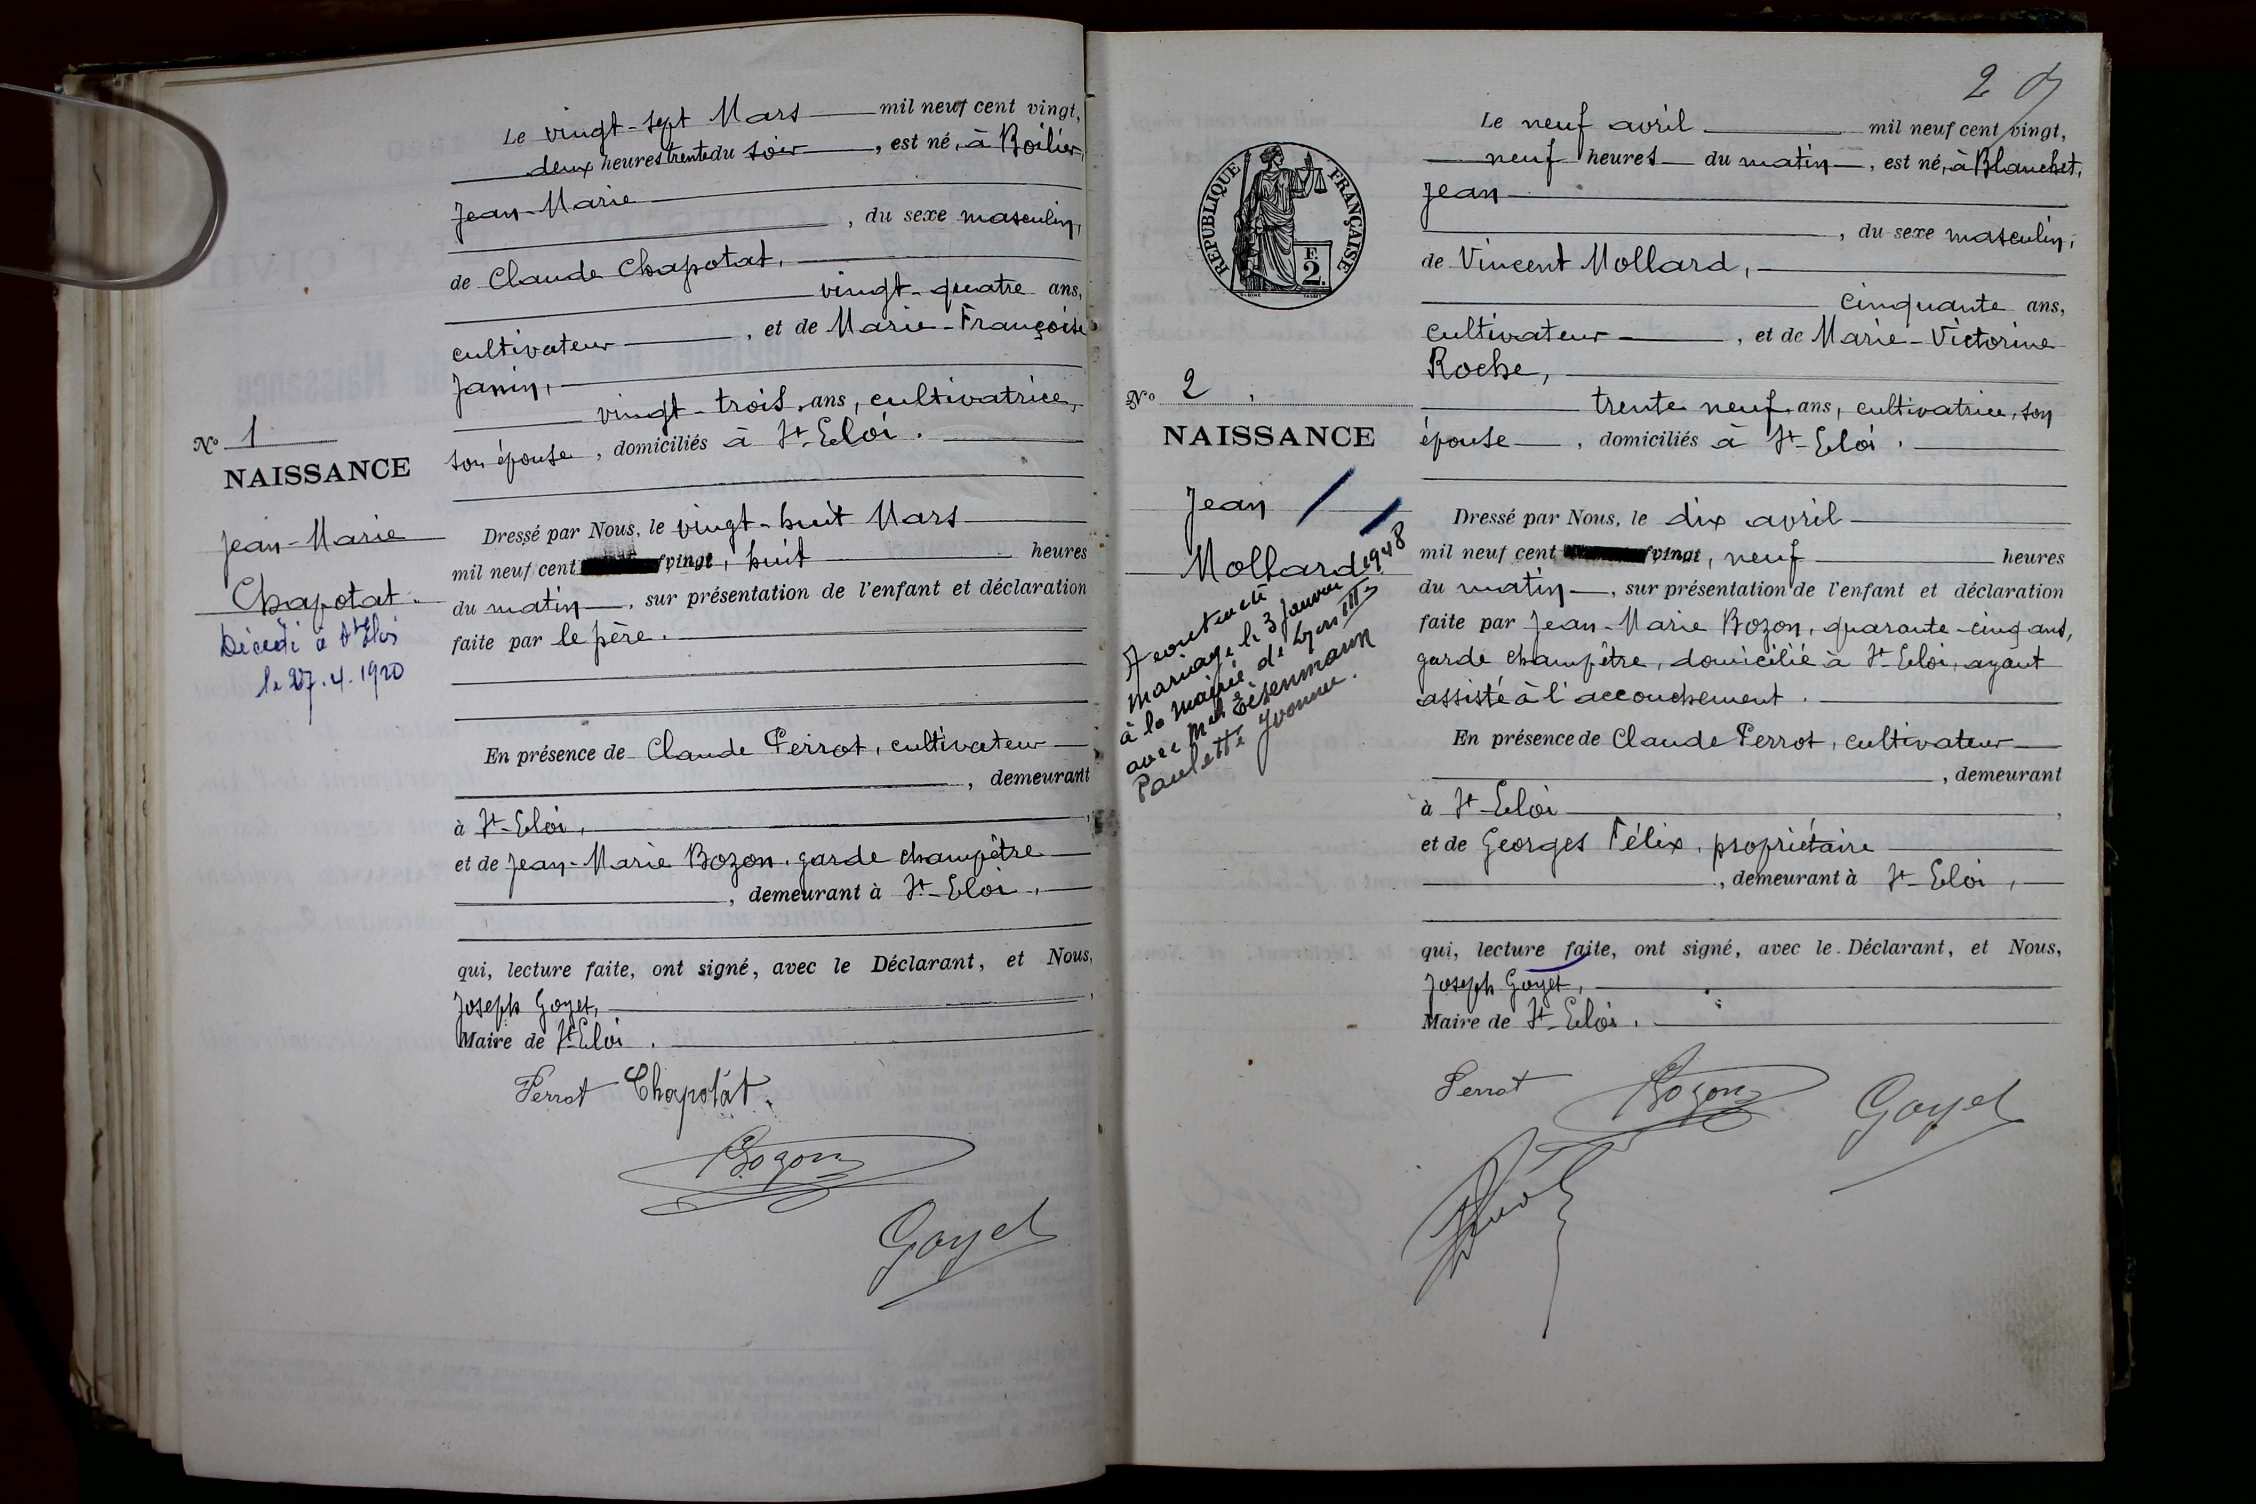 Le vingt-sept Mars mil neuf cent vingt,
deux heures trente du soir, est né, à Boilier,
Jean-Marie
, du sexe masculin,
de Claude Chapotat,
vingt-quatre ans,
cultivateur, et de Marie-Françoise
Janin,
vingt-trois ans, cultivatrice,
son épouse, domiciliés à St-Eloi.
Nº 1
NAISSANCE
Jean-Marie
Chapotat.
Décédé à St Eloi
le 27.4.1920
Dressé par Nous, le vingt-huit Mars
mil neuf cent vingt, huit heures
du matin, sur présentation de l'enfant et déclaration
faite par le père.
En présence de Claude Perrot, cultivateur
, demeurant
à St-Eloi,
et de Jean-Marie Bozon, garde champêtre
, demeurant à St-Eloi,
qui, lecture faite, ont signé, avec le Déclarant, et Nous,
Joseph Goyet,
Maire de St-Eloi.
Perrot Chapotat
Bozon
Goyet
2
RÉPUBLIQUE FRANÇAISE
F.
2.
Le neuf avril mil neuf cent vingt,
neuf heures du matin, est né, à Blanchet,
Jean
, du sexe masculin,
de Vincent Mollard,
cinquante ans,
cultivateur, et de Marie-Victorine
Roche,
trente neuf ans, cultivatrice, son
épouse, domiciliés à St-Eloi.
Nº 2
NAISSANCE
Jean
Mollard
A contracté
mariage le 3 Janvier 1948
à la mairie de Lyon IIIe
avec Melle Eisenmann
Paulette Yvonne.
Dressé par Nous, le dix avril
mil neuf cent vingt, neuf heures
du matin, sur présentation de l'enfant et déclaration
faite par Jean-Marie Bozon, quarante-cinq ans,
garde champêtre, domicilié à St-Eloi, ayant
assisté à l'accouchement.
En présence de Claude Perrot, cultivateur
, demeurant
à St-Eloi,
et de Georges Félix, propriétaire
, demeurant à St-Eloi,
qui, lecture faite, ont signé, avec le Déclarant, et Nous,
Joseph Goyet,
Maire de St-Eloi.
Perrot Bozon Goyet